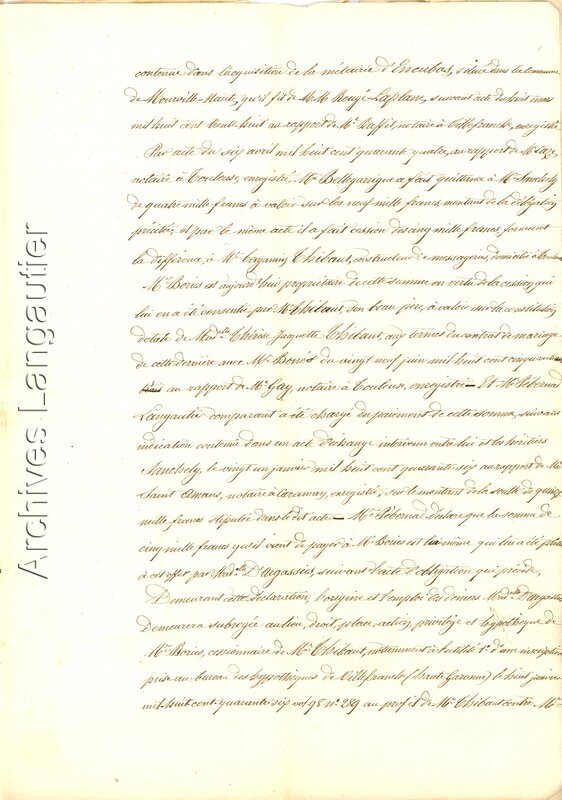 contenue dans l'acquisition de la métairie d'Encubas, située dans la commune
de Mourville-Haute, qu'il fit de M.M. Rougé-Laplane, suivant acte du huit mars
mil huit cent trente-huit au rapport de Me Raffit, notaire à Villefranche, enregistré.
Par acte du six avril mil huit cent quarante quatre, au rapport de Me
notaire à Toulouse, enregistré, Mr Bellegarrigue a fait quittance à Mr Sanchely
de quatre mille francs à valoir sur les neuf mille francs, montant de l'obligation
précitée; et par le même acte il a fait cession des cinq mille francs, formant
la différence, à Mr Benjamin Thibaut, constructeur de messageries, domicilié à Toulouse
Mr Bories est aujourd'hui propriétaire de cette somme en vertu de la cession qui
lui en a été consentie par Mr Thibaut, son beau père, à valoir sur la constitution
dotale de Mad.lle Thérèse Jaquette Thibaut, aux termes du contrat de mariage
de cette dernière avec Mr Bories du vingt neuf juin mil huit cent cinquante
au rapport de Me Gay, notaire à Toulouse, enregistré — Et Mr Pébernad
Langautier comparant a été chargé du paiement de cette somme, suivant
indication contenue dans un acte d'échange intervenu entre lui et les héritiers
Sanchely, le vingt un janvier mil huit cent quarante-six au rapport de Me
Saint Amans, notaire à Caraman, enregistré, sur le montant de la soulte de quinze
mille francs stipulée dans le dit acte — Mr Pébernad déclare que la somme de
cinq mille francs qu'il vient de payer à Mr Bories est la même qui lui a été prêtée
à cet effet par Mad.lle D'Argassies, suivant l'acte d'obligation qui précède,
Demeurant cette déclaration, l'origine et l'emploi des deniers Mad.lle D'Argassies
demeurera subrogée au lieu, droit, place, action, privilège et hypothèque de
Mr Bories, cessionnaire de Mr Thibaut, notamment à l'utilité 1° d'une inscription
prise au bureau des hypothèques de Villefranche (haute Garonne) le huit janvier
mil huit cent quarante six vol 98 n° 289 au profit de Mr Thibaut contre Mr
Archives Langautier